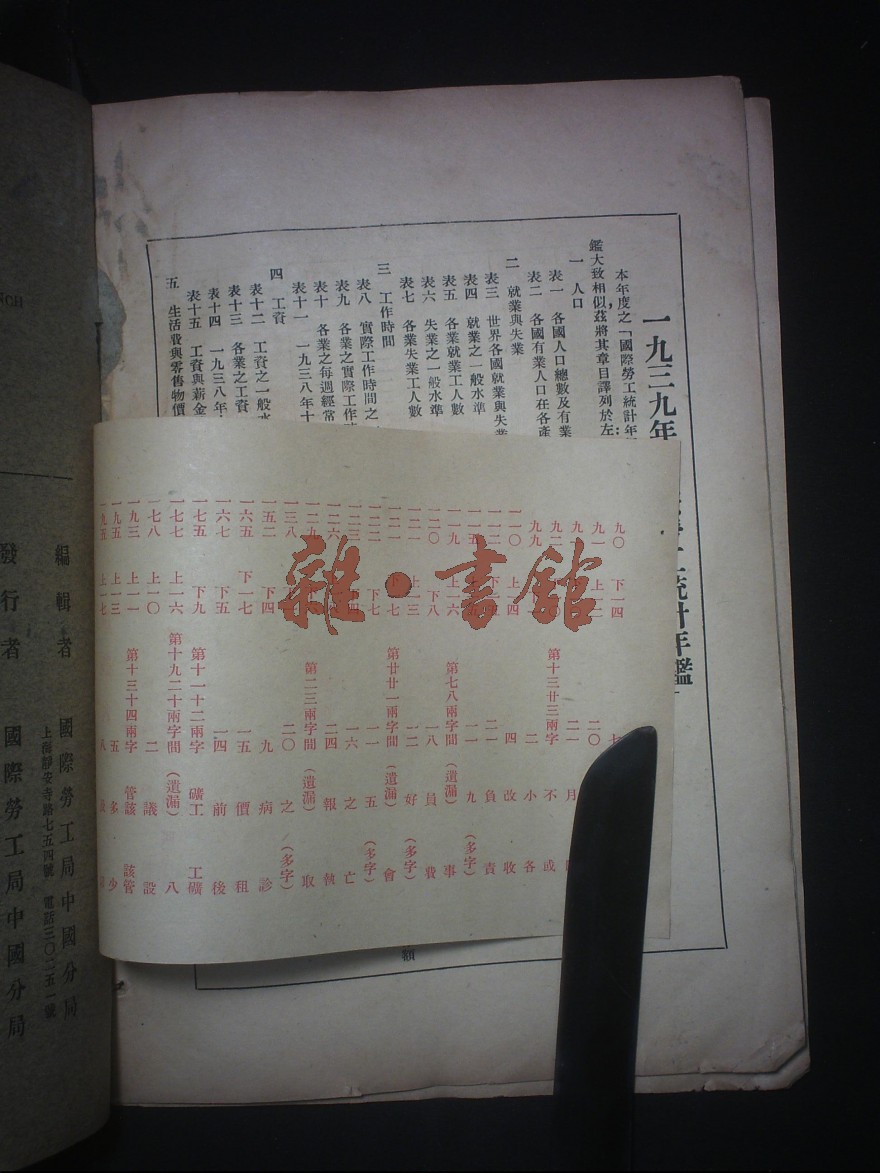 一九三九年
統計年鑑
本年度之「國際勞工統計年
鑑大致相似茲將其章目譯列於左
一 人口
表一 各國人口總數及有業
表二 各國有業人口在各產
二 就業與失業
表三 世界各國就業與失業
表四 就業之一般水準
表五 各業就業工人數
表六 失業之一般水準
表七 各業失業工人數
三 工作時間
表八 實際工作時間之
表九 各業之實際工作
表十 各業之每週經常
表十一 一九三八年十
四 工資
表十二 工資之一般水
表十三 各業之工資
表十四 一九三八年
表十五 工資與薪金
五 生活費與零售物價
額
九〇 下一四
九一 上一二 二〇
九一 二一 月
九二 第十三廿三兩字 不 或
九九 二 小 各
一一〇 上四 四 改 收
一一二 二一 負 責
一一九 上五 一一 九 (多字)
一一九 上六 第七八兩字間 (遺漏) 事
一二〇 下八 一八 員 費
一二一 上一三 一二 好 (多字)
一二一 下七 第廿廿一兩字間 (遺漏) 會
一二二 下七 一一 五 (多字)
一二三 一六 之 亡
一二六 二四 報 執
一二九 第二三兩字間 (遺漏) 取
一三八 二〇 之 (多字)
一五二 下四 九 病 診
一六五 下一七 一五 價 租
一六七 下五 一四 前 後
一七五 下九 第十一十二兩字 礦工 工礦
一七七 上一六 第十九二十兩字間 (遺漏) 八
一七八 上一〇 二 議 設
一九三 上一一 第十三十四兩字 管該 該管
一九五 上一三 五 多 少
一九五 上一七 八
雜·書館
編輯者 國際勞工局中國分局
上海靜安寺路七五四號 電話三〇二五一號
發行者 國際勞工局中國分局